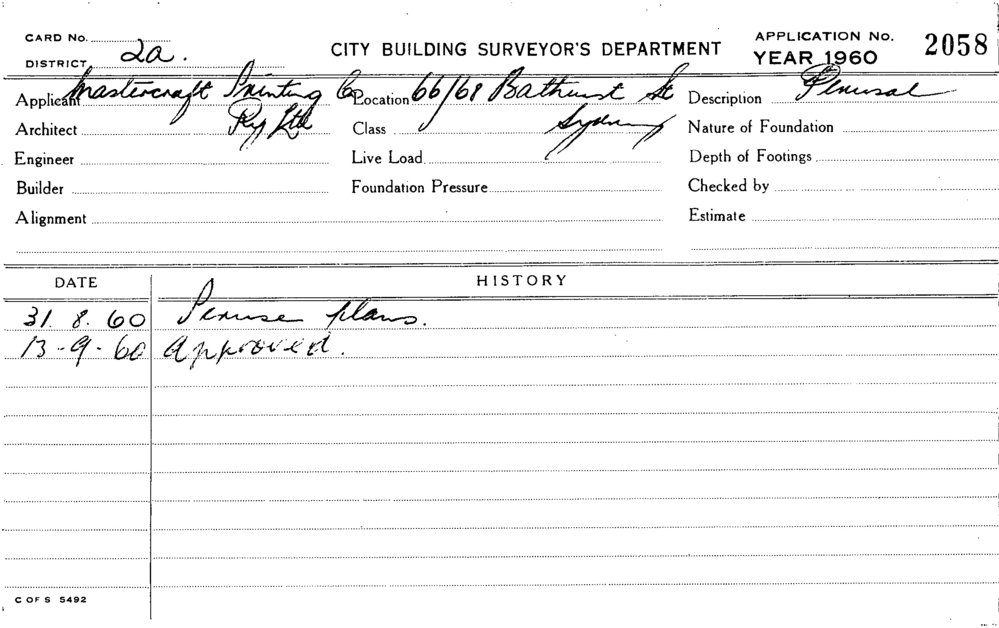 CARD No.
DISTRICT 2a.
CITY BUILDING SURVEYOR'S DEPARTMENT
APPLICATION No. 2058
YEAR 1960
Applicant Mastercraft Printing Co Location 66/68 Bathurst St Description Perusal
Architect Pty Ltd Class Sydney Nature of Foundation
Engineer Live Load Depth of Footings
Builder Foundation Pressure Checked by
Alignment Estimate
DATE HISTORY
31. 8. 60 Peruse plans.
13-9-60 Approved.
C OF S 5492